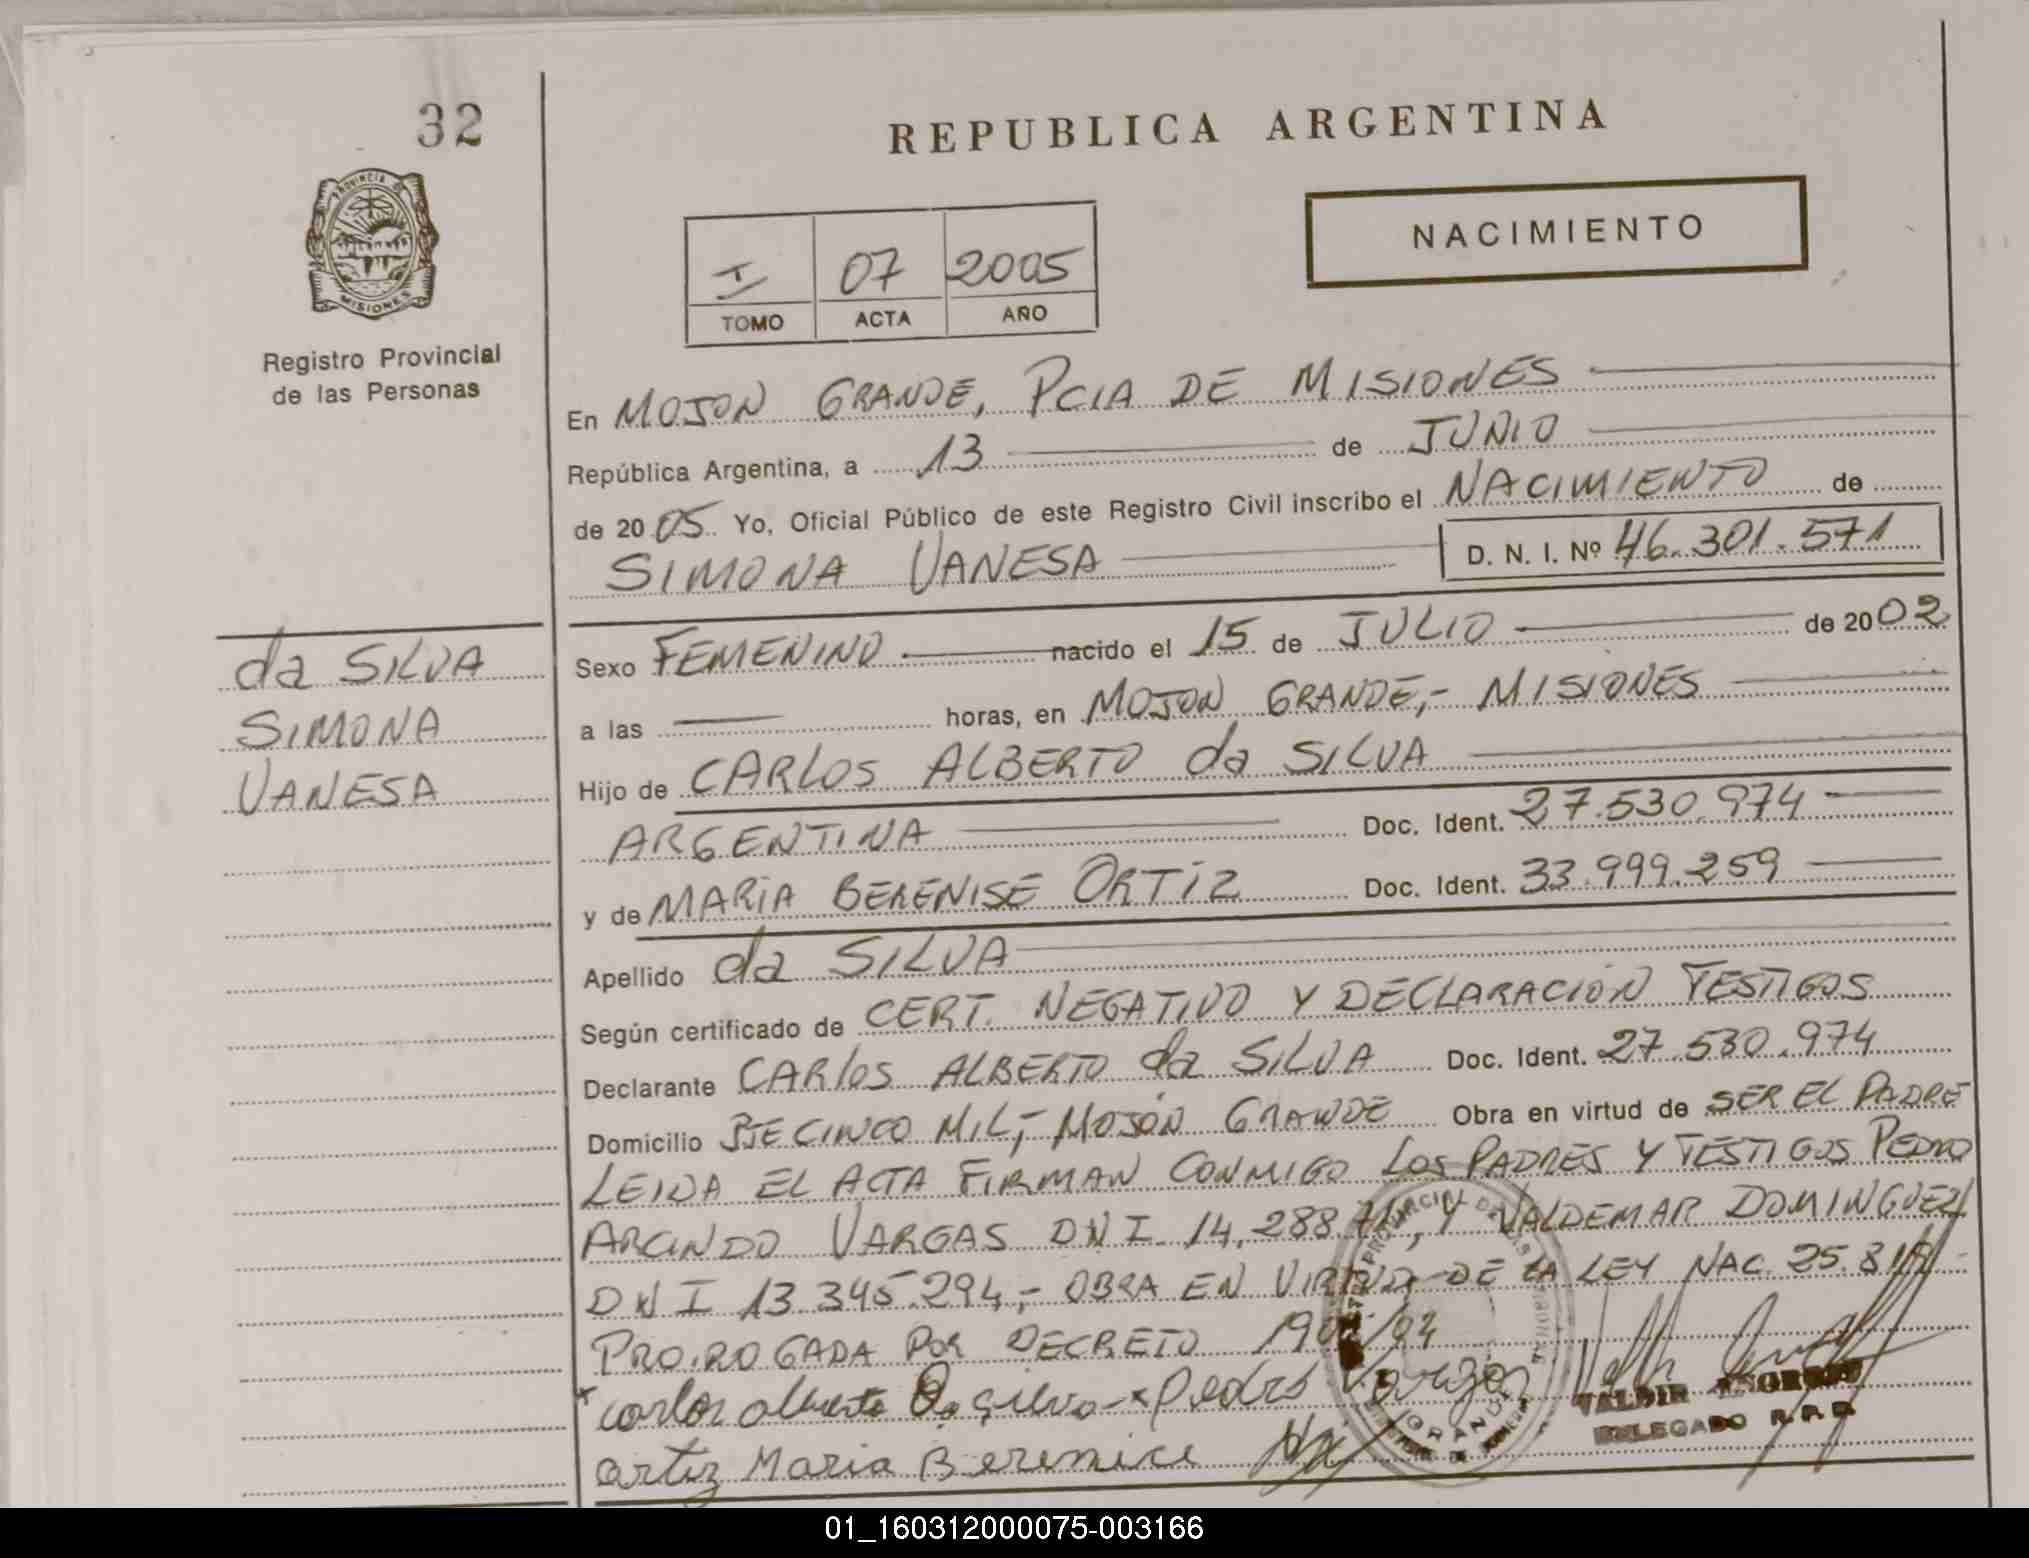 32
REPUBLICA ARGENTINA
PROVINCIA DE
MISIONES
NACIMIENTO
I 07 2005
TOMO ACTA AÑO
Registro Provincial
de las Personas
En MOJON GRANDE, PCIA DE MISIONES
República Argentina, a 13 de JUNIO
de 2005 Yo, Oficial Público de este Registro Civil inscribo el NACIMIENTO de
SIMONA VANESA D. N. I. Nº 46.301.571
da SILVA
SIMONA
VANESA
Sexo FEMENINO nacido el 15 de JULIO de 2002
a las horas, en MOJON GRANDE,- MISIONES
Hijo de CARLOS ALBERTO da SILVA
ARGENTINA Doc. Ident. 27.530.974
y de MARIA BERENISE ORTIZ Doc. Ident. 33.999.259
Apellido da SILVA
Según certificado de CERT. NEGATIVO Y DECLARACIÓN TESTIGOS
Declarante CARlos ALBERTO da SILVA Doc. Ident. 27.530.974
Domicilio PJE CINCO MIL,- MOJÓN GRANDE Obra en virtud de SER EL PADRE
LEIDA EL ACTA FIRMAN CONMIGO LOS PADRES Y TESTIGOS PEDRO
ARCINDO VARGAS DNI 14.288. Y VALDEMAR DOMINGUEZ
DNI 13.345.294,- OBRA EN VIRTUD DE LA LEY NAC. 25.819
PRORROGADA POR DECRETO
x carlos alberto Da Silva x Pedro Vargas
ortiz Maria Berenice
VALDIR
DELEGADO R.P.P.
01_160312000075-003166